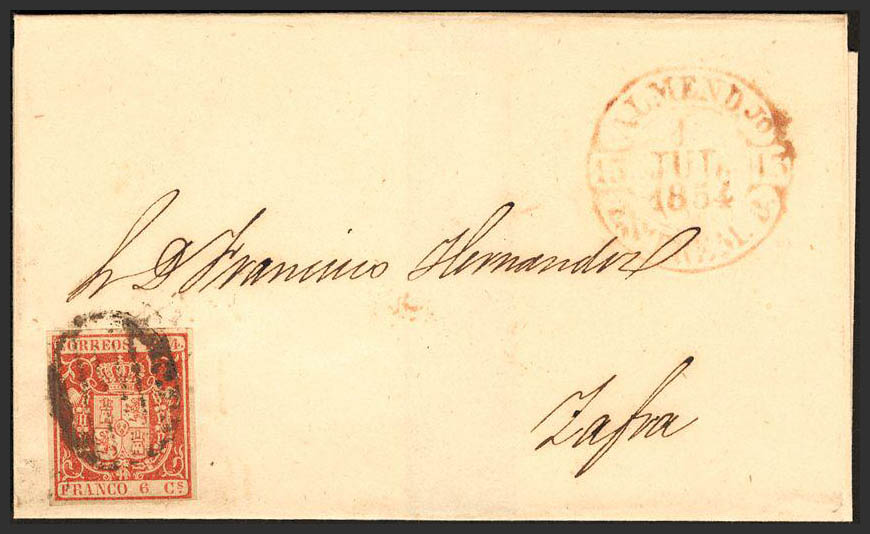 ALMENDJO
1
JUL
1854
Francisco Hernandez
Zafra
CORREOS
FRANCO 6 Cs